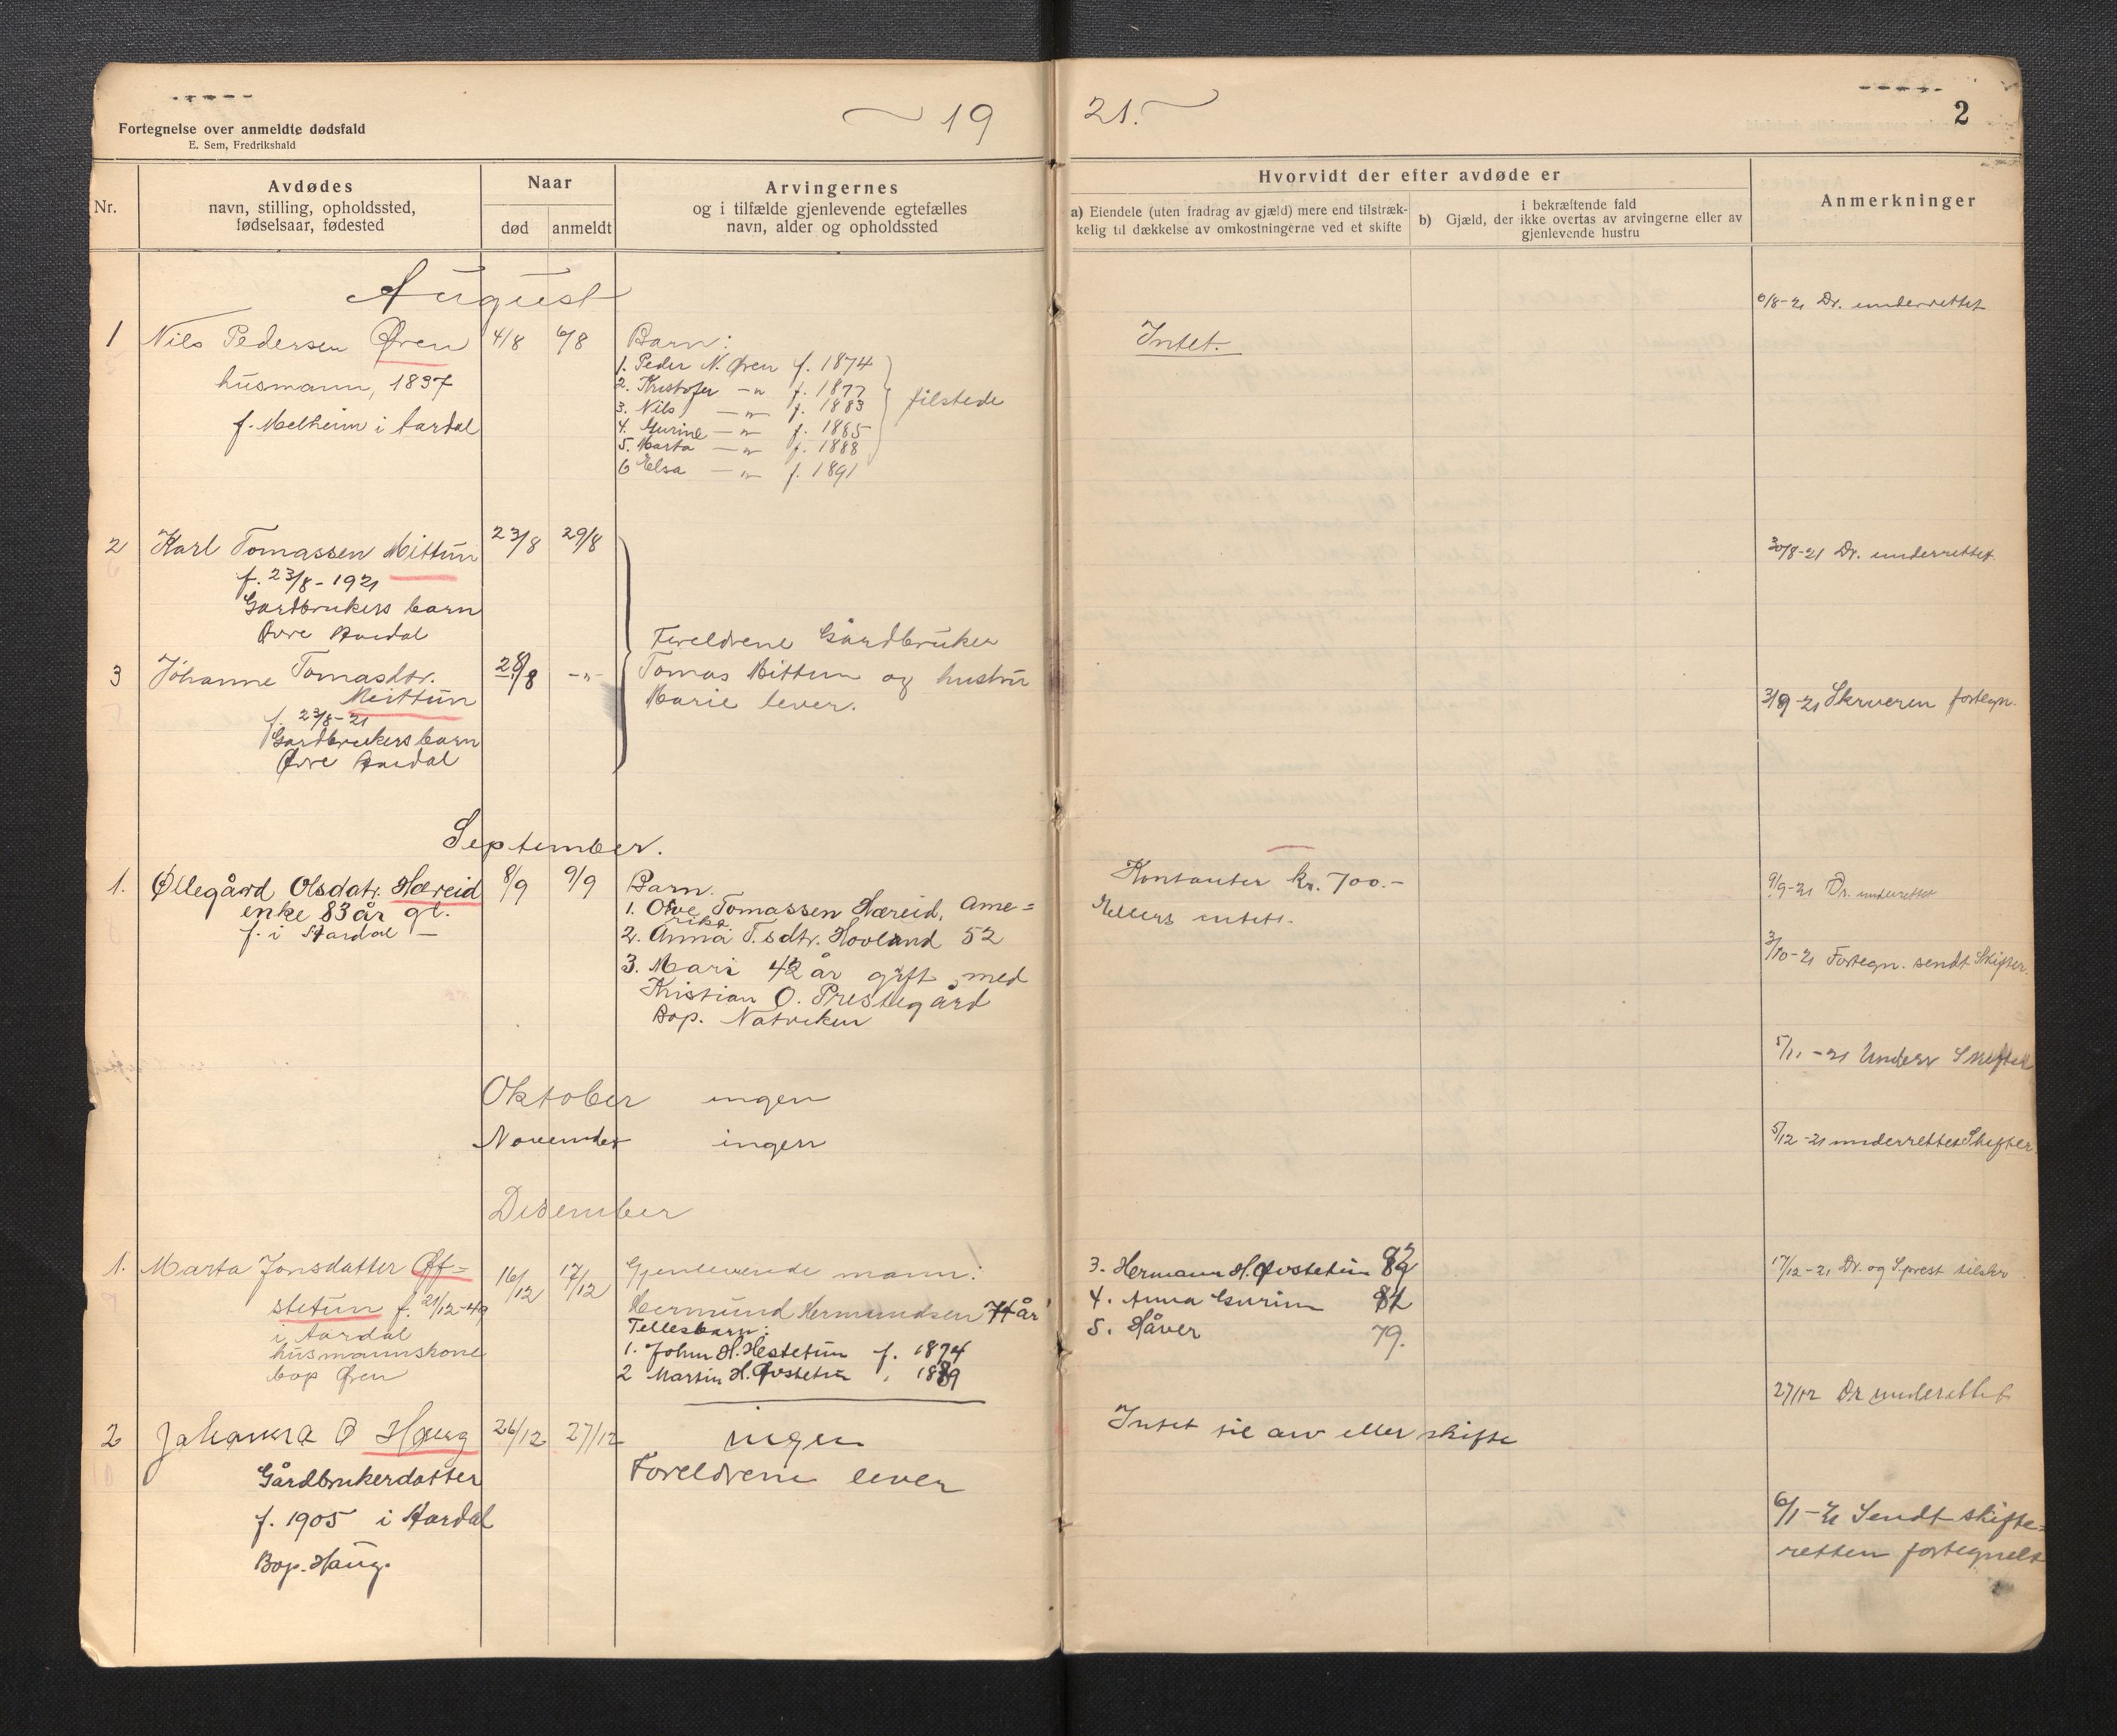 Fortegnelse over anmeldte dødsfald
E. Sem, Fredrikshald
19
21.
2
Nr.
Avdødes
navn, stilling, opholdssted,
fødselsaar, fødested
Naar
død
anmeldt
Arvingernes
og i tilfælde gjenlevende egtefælles
navn, alder og opholdssted
Hvorvidt der efter avdøde er
a) Eiendele (uten fradrag av gjæld) mere end tilstræk-
kelig til dækkelse av omkostningerne ved et skifte
i bekræftende fald
b) Gjæld, der ikke overtas av arvingerne eller av
gjenlevende hustru
Anmerkninger
August
6/8-21 Dr. underrettet
1 Nils Pedersen Øren 4/8 6/8 Barn: Intet.
husmann, 1837
f. Melheim i Aardal
1. Peder N. Øren f. 1874
2. Kristofer -"- f. 1877
3. Nils -"- f. 1883
4. Gurine -"- f. 1885
5. Marta -"- f. 1888
6 Elsa -"- f. 1891
tilstede
2 Karl Tomassen Mittun 23/8 29/8
30/8-21 Dr. underrettet
f. 23/8-1921
Gardbrukers barn
Øvre Aardal
3 Johanne Tomasdtr. 28/8 -"-
Meittun
f. 23/8-21
Gardbrukers barn
Øvre Aardal
Foreldrene Gårdbruker
Tomas Mittun og hustru
Marie lever.
3/9-21 Skrveren fortegn.
September.
1. Øllegård Olsdatr. Hæreid 8/9 9/9 Barn.
enke 83 år gl.
f. i Aardal
1. Olve Tomassen Hæreid, Ame=
rika
2. Anna T.sdtr. Hovland 52
3. Mari 42 år gift med
Kristian O. Prestegård
Bop. Natviken
Kontanter kr. 700.-
Ellers intet.
9/9-21 Dr. underrettet
3/10-21 Fortegn. sendt Skifter.
5/11-21 Underr Skifter
Oktober ingen
November ingen
5/12-21 underrettet Skifter
Desember
1. Marta Jonsdatter Øf= 16/12 17/12 Gjenlevende mann:
stetun f. 21/12-49
i Aardal
husmannskone
bop Øren
Hermund Hermundsen 74 år
Fellesbarn:
1. John H. Hestetun f. 1874
2 Martin H. Øvstetun " 1889
3. Hermann H. Øvstetun 82
4. Anna Gurine 84
5. Håver 79.
17/12-21 Dr. og S.prest tilskr
27/12 Dr underettet
2 Johanna O Haug 26/12 27/12 ingen
Gårdbrukerdatter
f. 1905 i Aardal
Bop. Haug.
Foreldrene lever
Intet til arv eller skifte
6/1-22 Sendt skifte=
retten fortegnelse